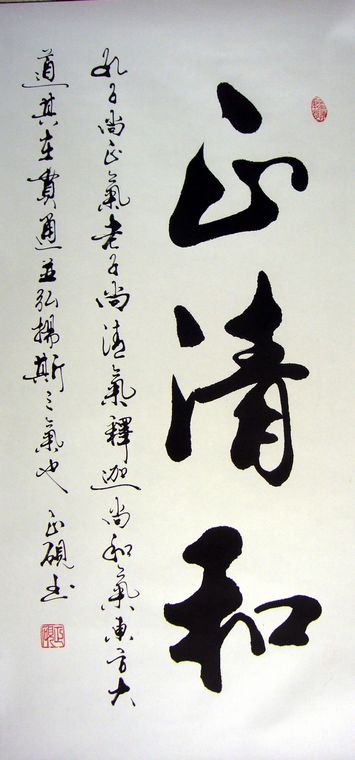 正清和
孔子尚正氣老子尚清氣釋迦尚和氣東方大
道其在貫通並弘揚斯三氣也 正硯书